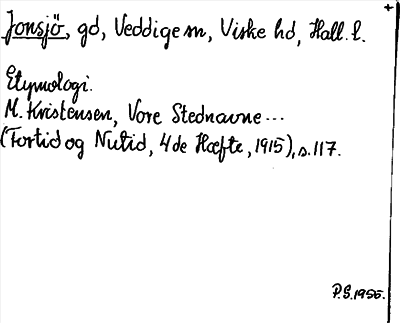 Jonsjö, gd, Veddige sn, Viske hd, Hall. l.
Etymologi.
M. Kristensen, Vore Stednavne ...
(Fortid og Nutid, 4de Hæfte, 1915), s. 117.
P.S. 1956.